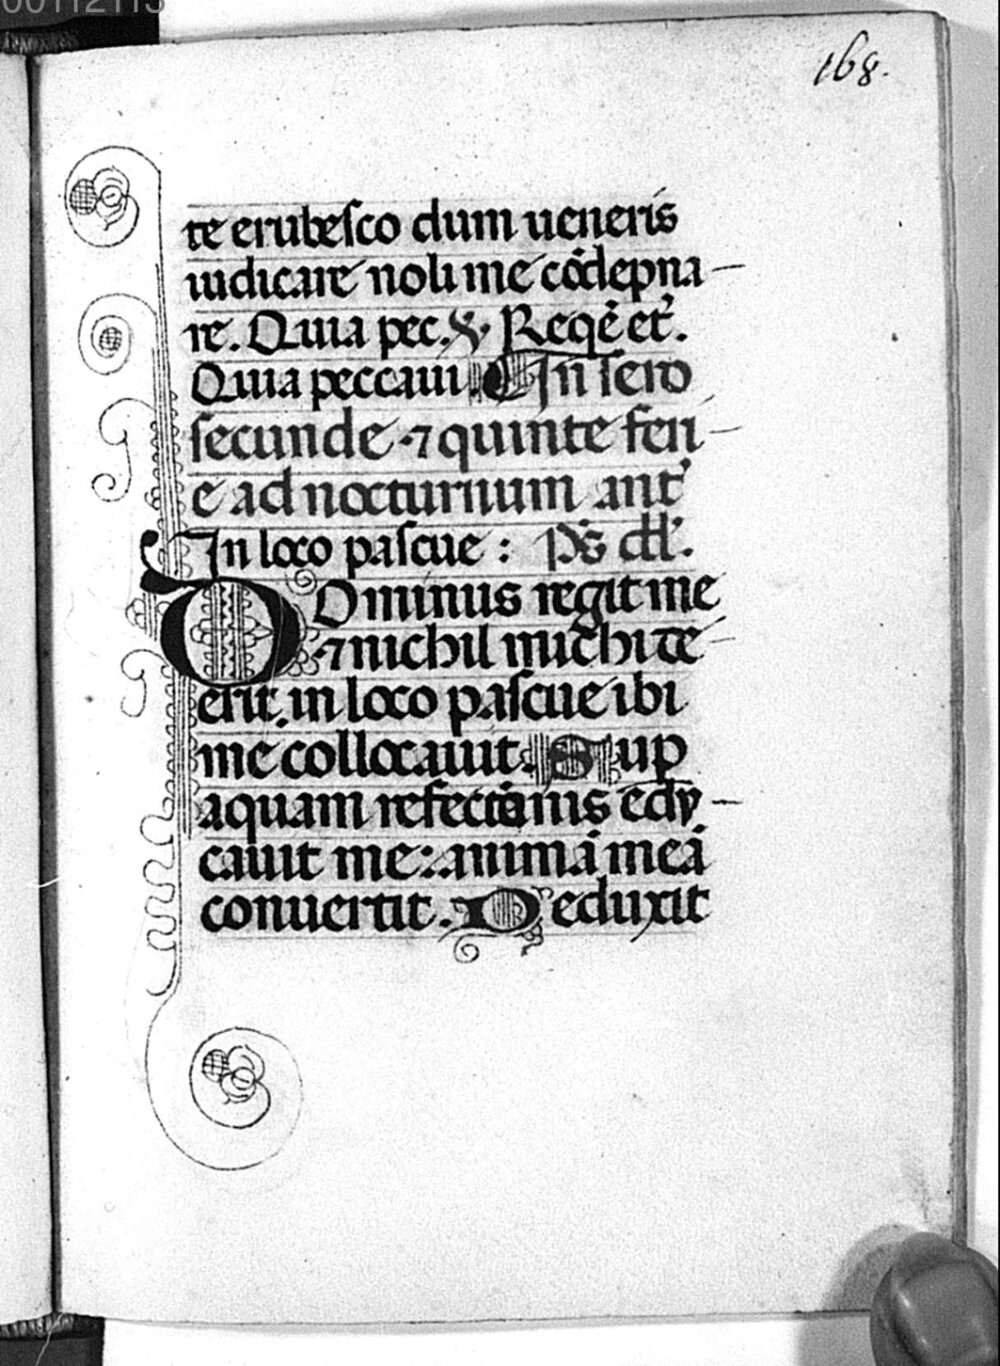 00112113
168.
te erubesco dum ueneris
iudicare noli me cōdepna
re. Quia pec. ℣. Reqē et̉.
Quia peccaui In fero
secunde ⁊ quinte feri
e ad nocturnum ant̉
In loco pascue : Ps̄ dd̉.
Dominus regit me
⁊ nichil michi de
erit. in loco pascue ibi
me collocauit. Sup
aquam refectōnis edu
cauit me: animā meā
conuertit. Deduxit